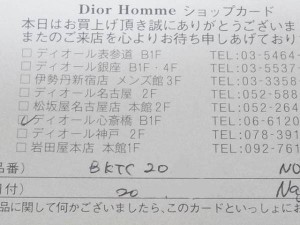 Dior Homme ショップカード
本日はお買上げ頂き誠にありがとうございま
またのご来店を心よりお待ち申しあげており
□ディオール表参道 B1F TEL:03-5464-
□ディオール銀座 B1F・4F TEL:03-5537-
□伊勢丹新宿店 メンズ館3F TEL:03-3358-
□ディオール名古屋 2F TEL:052-588-
□松坂屋名古屋店 本館2F TEL:052-264-
□ディオール心斎橋 B1F TEL:06-6120-
□ディオール神戸 2F TEL:078-391-
□岩田屋本店 本館1F TEL:092-761-
品番) BKTC 20 NO
付) 20
品に関して何かございましたら、このカードといっしょにお